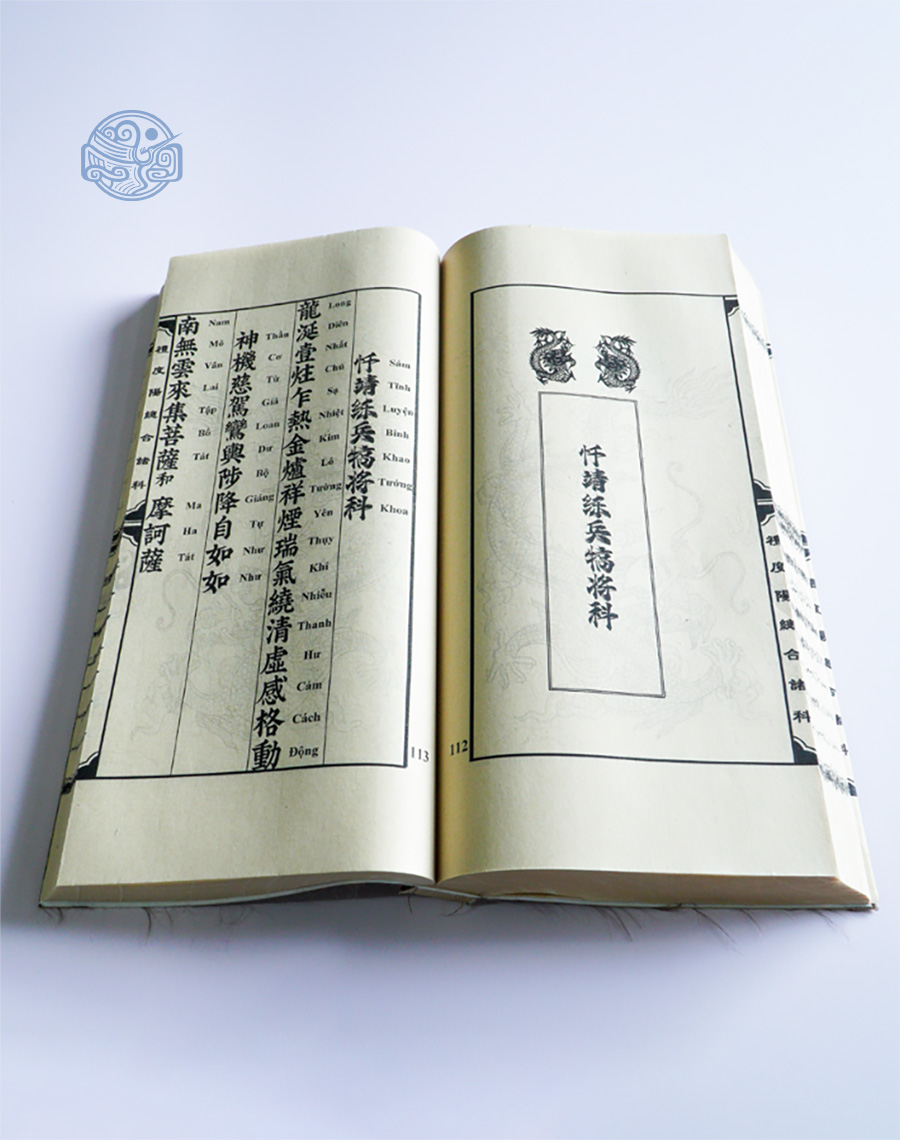 禮度陽合諸科
忏靖练兵犒将科
112
忏靖练兵犒将科
Sám Tĩnh Luyện Binh Khao Tướng Khoa
龍涎壹炷乍熱金爐祥煙瑞氣繞清虛感格動
Long Diên Nhất Chú Sạ Nhiệt Kim Lô Tường Yên Thụy Khí Nhiễu Thanh Hư Cảm Cách Động
神機慈駕鸞輿陟降自如如
Thần Cơ Từ Giá Loan Dư Bộ Giáng Tự Như Như
南無雲來集菩薩和摩訶薩
Nam Mô Vân Lai Tập Bồ Tát Ma Ha Tát
禮度陽合諸科
113